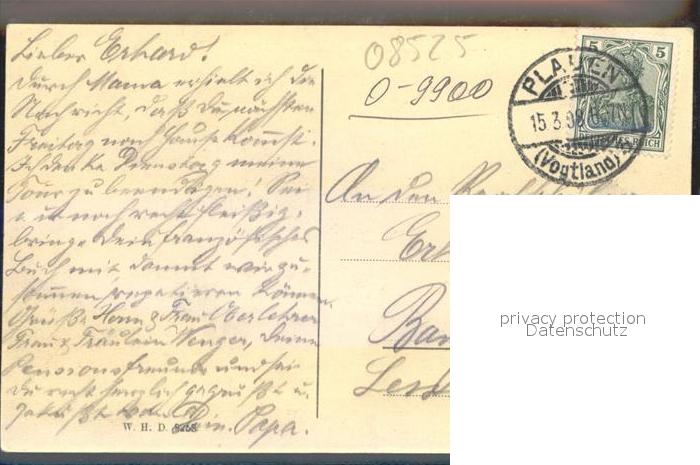 Lieber Erhard!
durch Mama erhielt ich die
Nachricht, daß Du nächsten
Freitag nach Hause kommst.
Ich denke Dienstag meine
Tour zu beendigen! Sei
noch recht fleißig,
bringe Dein französisches
Buch mit, damit wir zu-
sammen repetieren können.
Grüße Herrn & Frau Oberlehrer
Frau & Fräulein Wenzer, Deine
Pensionsfreunde und sei
Du recht herzlich gegrüßt u.
geküßt von Dein. Papa.
W. H. D. 8258
08525
0-9900
PLAUEN
15.3.
(Vogtland)
5 5
REICH
An den
privacy protection
Datenschutz